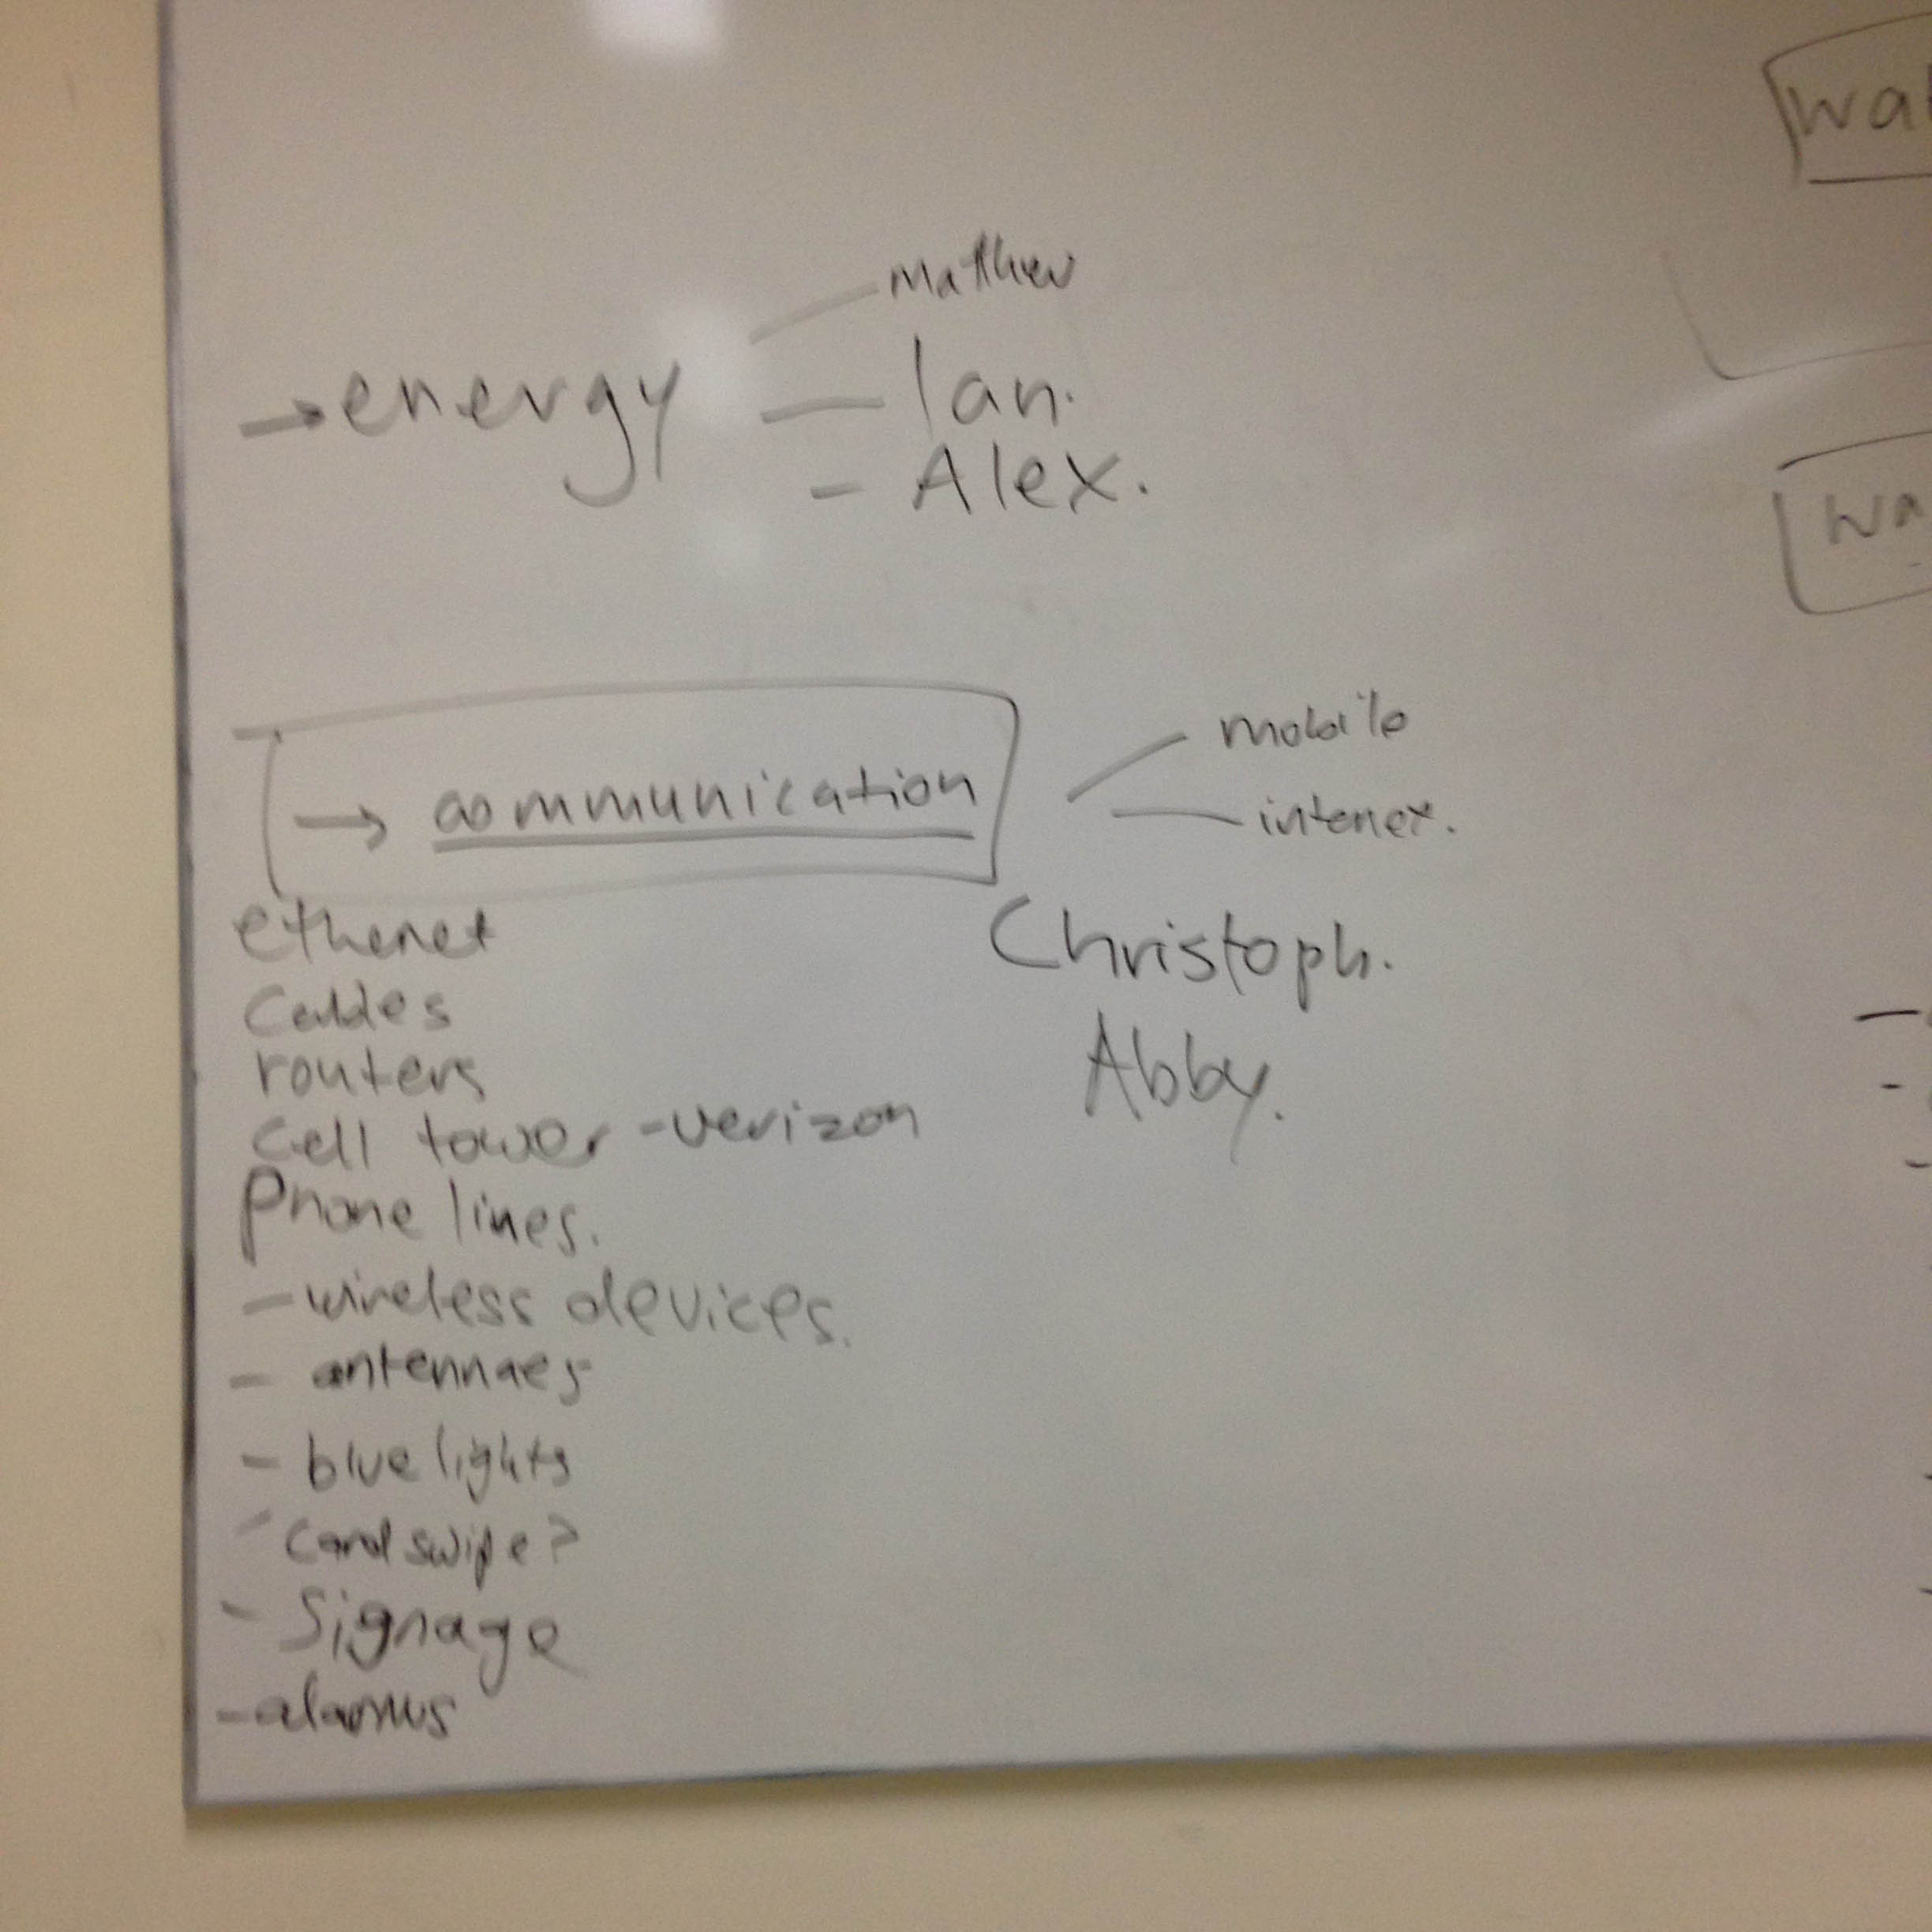 Matthew
→ energy
— Ian.
- Alex.
→ communication
mobile
internet.
ethenet
Cables
routers
Cell tower - verizon
Phone lines.
- wireless devices.
- antennaes
- blue lights
- Card swipe?
- Signage
- alarms
Christoph.
Abby.